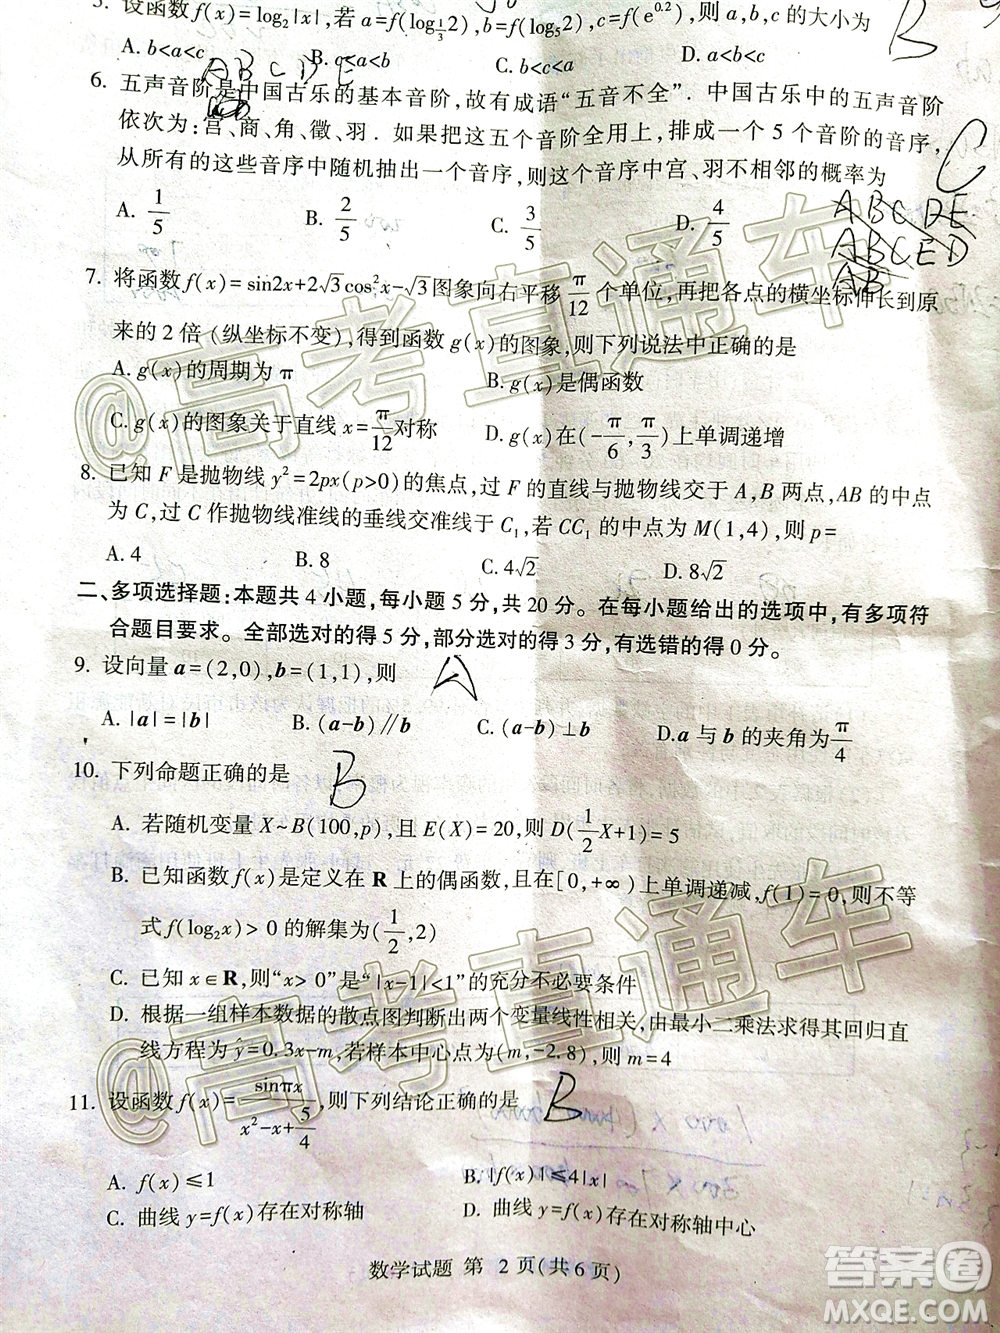 5. 设函数f(x)=log₂|x|,若a=f(log_{1/3}2),b=f(log₅2),c=f(e^{0.2}),则a,b,c的大小为
B
A. b<a<c B. c<b<a C. b<c<a D. a<b<c
A B C D E
6. 五声音阶是中国古乐的基本音阶,故有成语“五音不全”. 中国古乐中的五声音阶
依次为:宫、商、角、徵、羽. 如果把这五个音阶全用上,排成一个 5 个音阶的音序,
从所有的这些音序中随机抽出一个音序,则这个音序中宫、羽不相邻的概率为
C
A. 1/5 B. 2/5 C. 3/5 D. 4/5
ABCDE
ABCED
AB
7. 将函数 f(x)=sin2x+2√3cos²x-√3图象向右平移π/12个单位,再把各点的横坐标伸长到原
来的 2 倍(纵坐标不变),得到函数 g(x)的图象,则下列说法中正确的是
A. g(x)的周期为 π B. g(x)是偶函数
C. g(x)的图象关于直线 x=π/12对称 D. g(x)在(-π/6,π/3)上单调递增
8. 已知 F 是抛物线 y²=2px(p>0)的焦点,过 F 的直线与抛物线交于 A,B 两点,AB 的中点
为 C,过 C 作抛物线准线的垂线交准线于 C₁,若 CC₁ 的中点为 M(1,4),则 p=
A. 4 B. 8 C. 4√2 D. 8√2
二、多项选择题:本题共 4 小题,每小题 5 分,共 20 分。在每小题给出的选项中,有多项符
合题目要求。全部选对的得 5 分,部分选对的得 3 分,有选错的得 0 分。
9. 设向量 a=(2,0),b=(1,1),则
A
A. |a|=|b| B. (a-b)∥b C. (a-b)⊥b D. a 与 b 的夹角为π/4
10. 下列命题正确的是
B
A. 若随机变量 X~B(100,p),且 E(X)=20,则 D(1/2X+1)=5
B. 已知函数 f(x)是定义在 R 上的偶函数,且在[0,+∞)上单调递减,f(1)=0,则不等
式 f(log₂x)>0 的解集为(1/2,2)
C. 已知 x∈R,则“x>0”是“|x-1|<1”的充分不必要条件
D. 根据一组样本数据的散点图判断出两个变量线性相关,由最小二乘法求得其回归直
线方程为 ŷ=0.3x-m,若样本中心点为(m,-2.8),则 m=4
11. 设函数 f(x)=sinπx/(x²-x+5/4),则下列结论正确的是
B
A. f(x)≤1 B. |f(x)|≤4|x|
C. 曲线 y=f(x)存在对称轴 D. 曲线 y=f(x)存在对称轴中心
数学试题 第 2 页(共 6 页)
@高考直通车
@高考直通车
答案圈
MXQE.COM